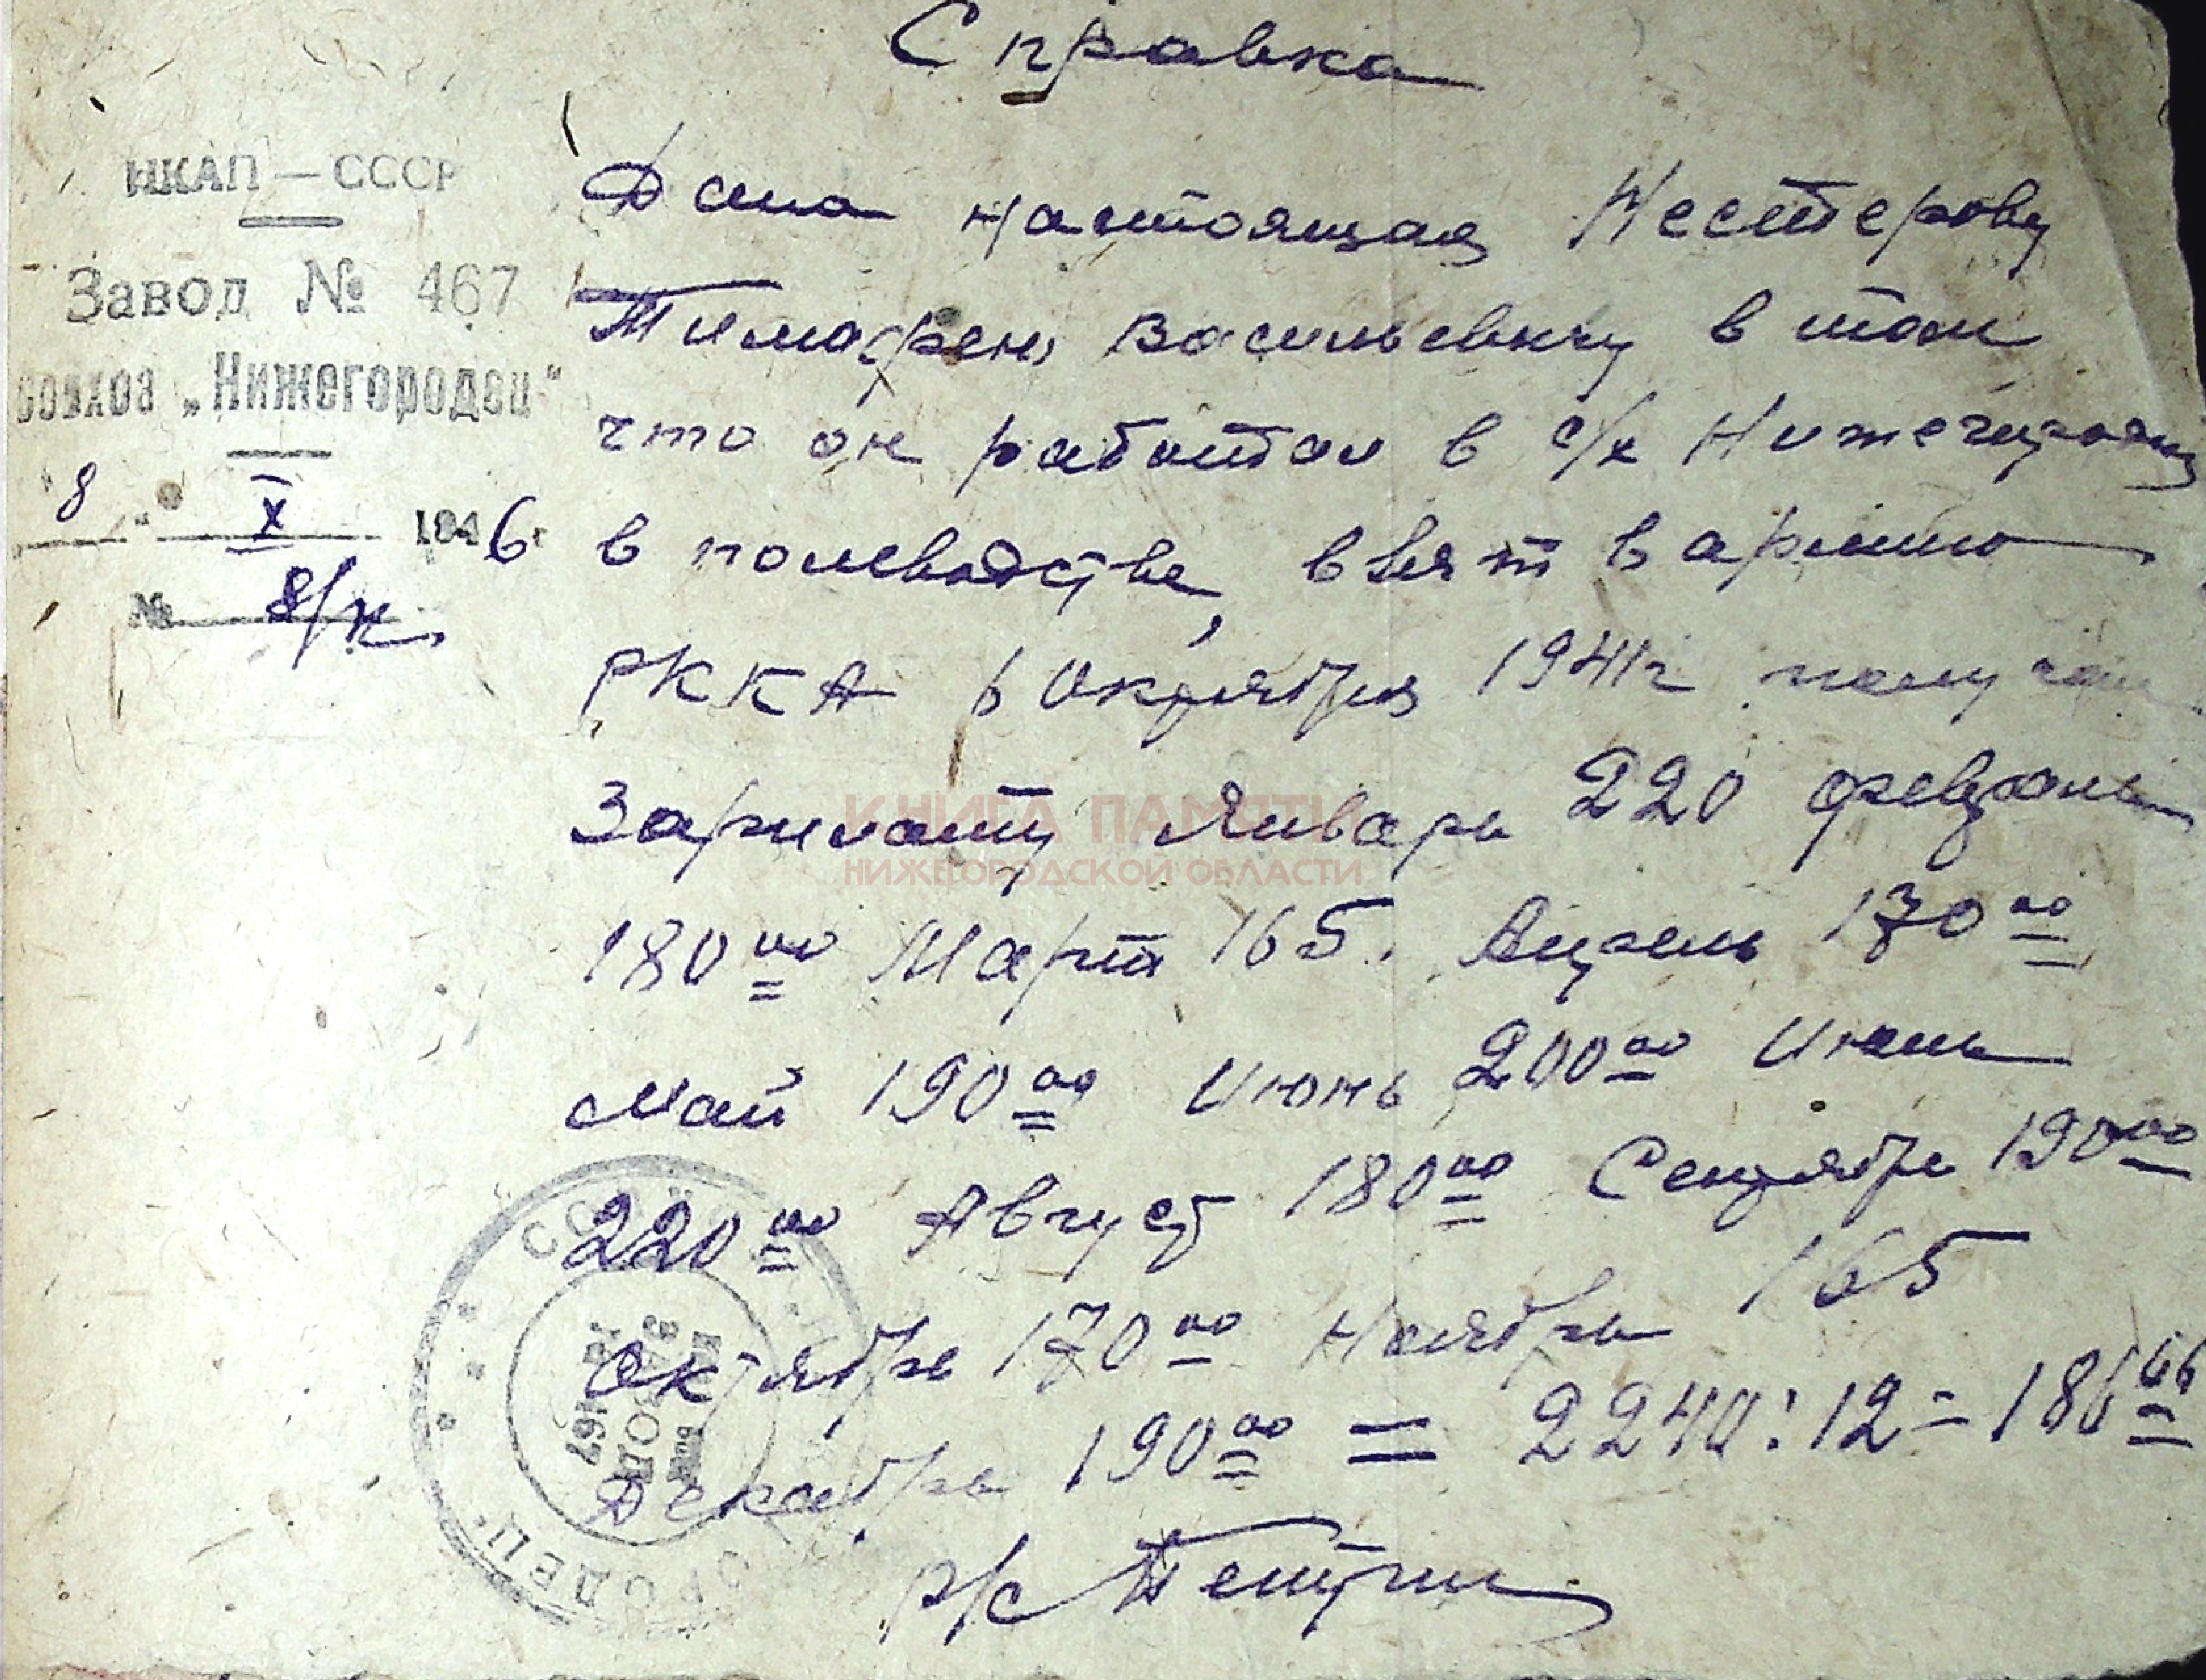 Справка
НКАП — СССР
Завод № 467
совхоз „Нижегородец"
8 " X 1946 г
№ 8/н.
Дана настоящая Нестерову
Тимофею Васильевичу в том
что он работал в с/х Нижегородец
в полеводстве, взят в армию
РККА в Октября 1941г получал
Зарплату Январь 220 февраль
180 00 Март 165. Апрель 170 00
май 190 00 Июнь 200 00 Июль
220 00 Август 180 00 Сентябрь 190 00
Октябрь 170 00 Ноябрь 165
Декабрь 190 00 = 2240 : 12 = 186 66
р/с
КНИГА ПАМЯТИ
НИЖЕГОРОДСКОЙ ОБЛАСТИ
ЗАВОД
№ 467